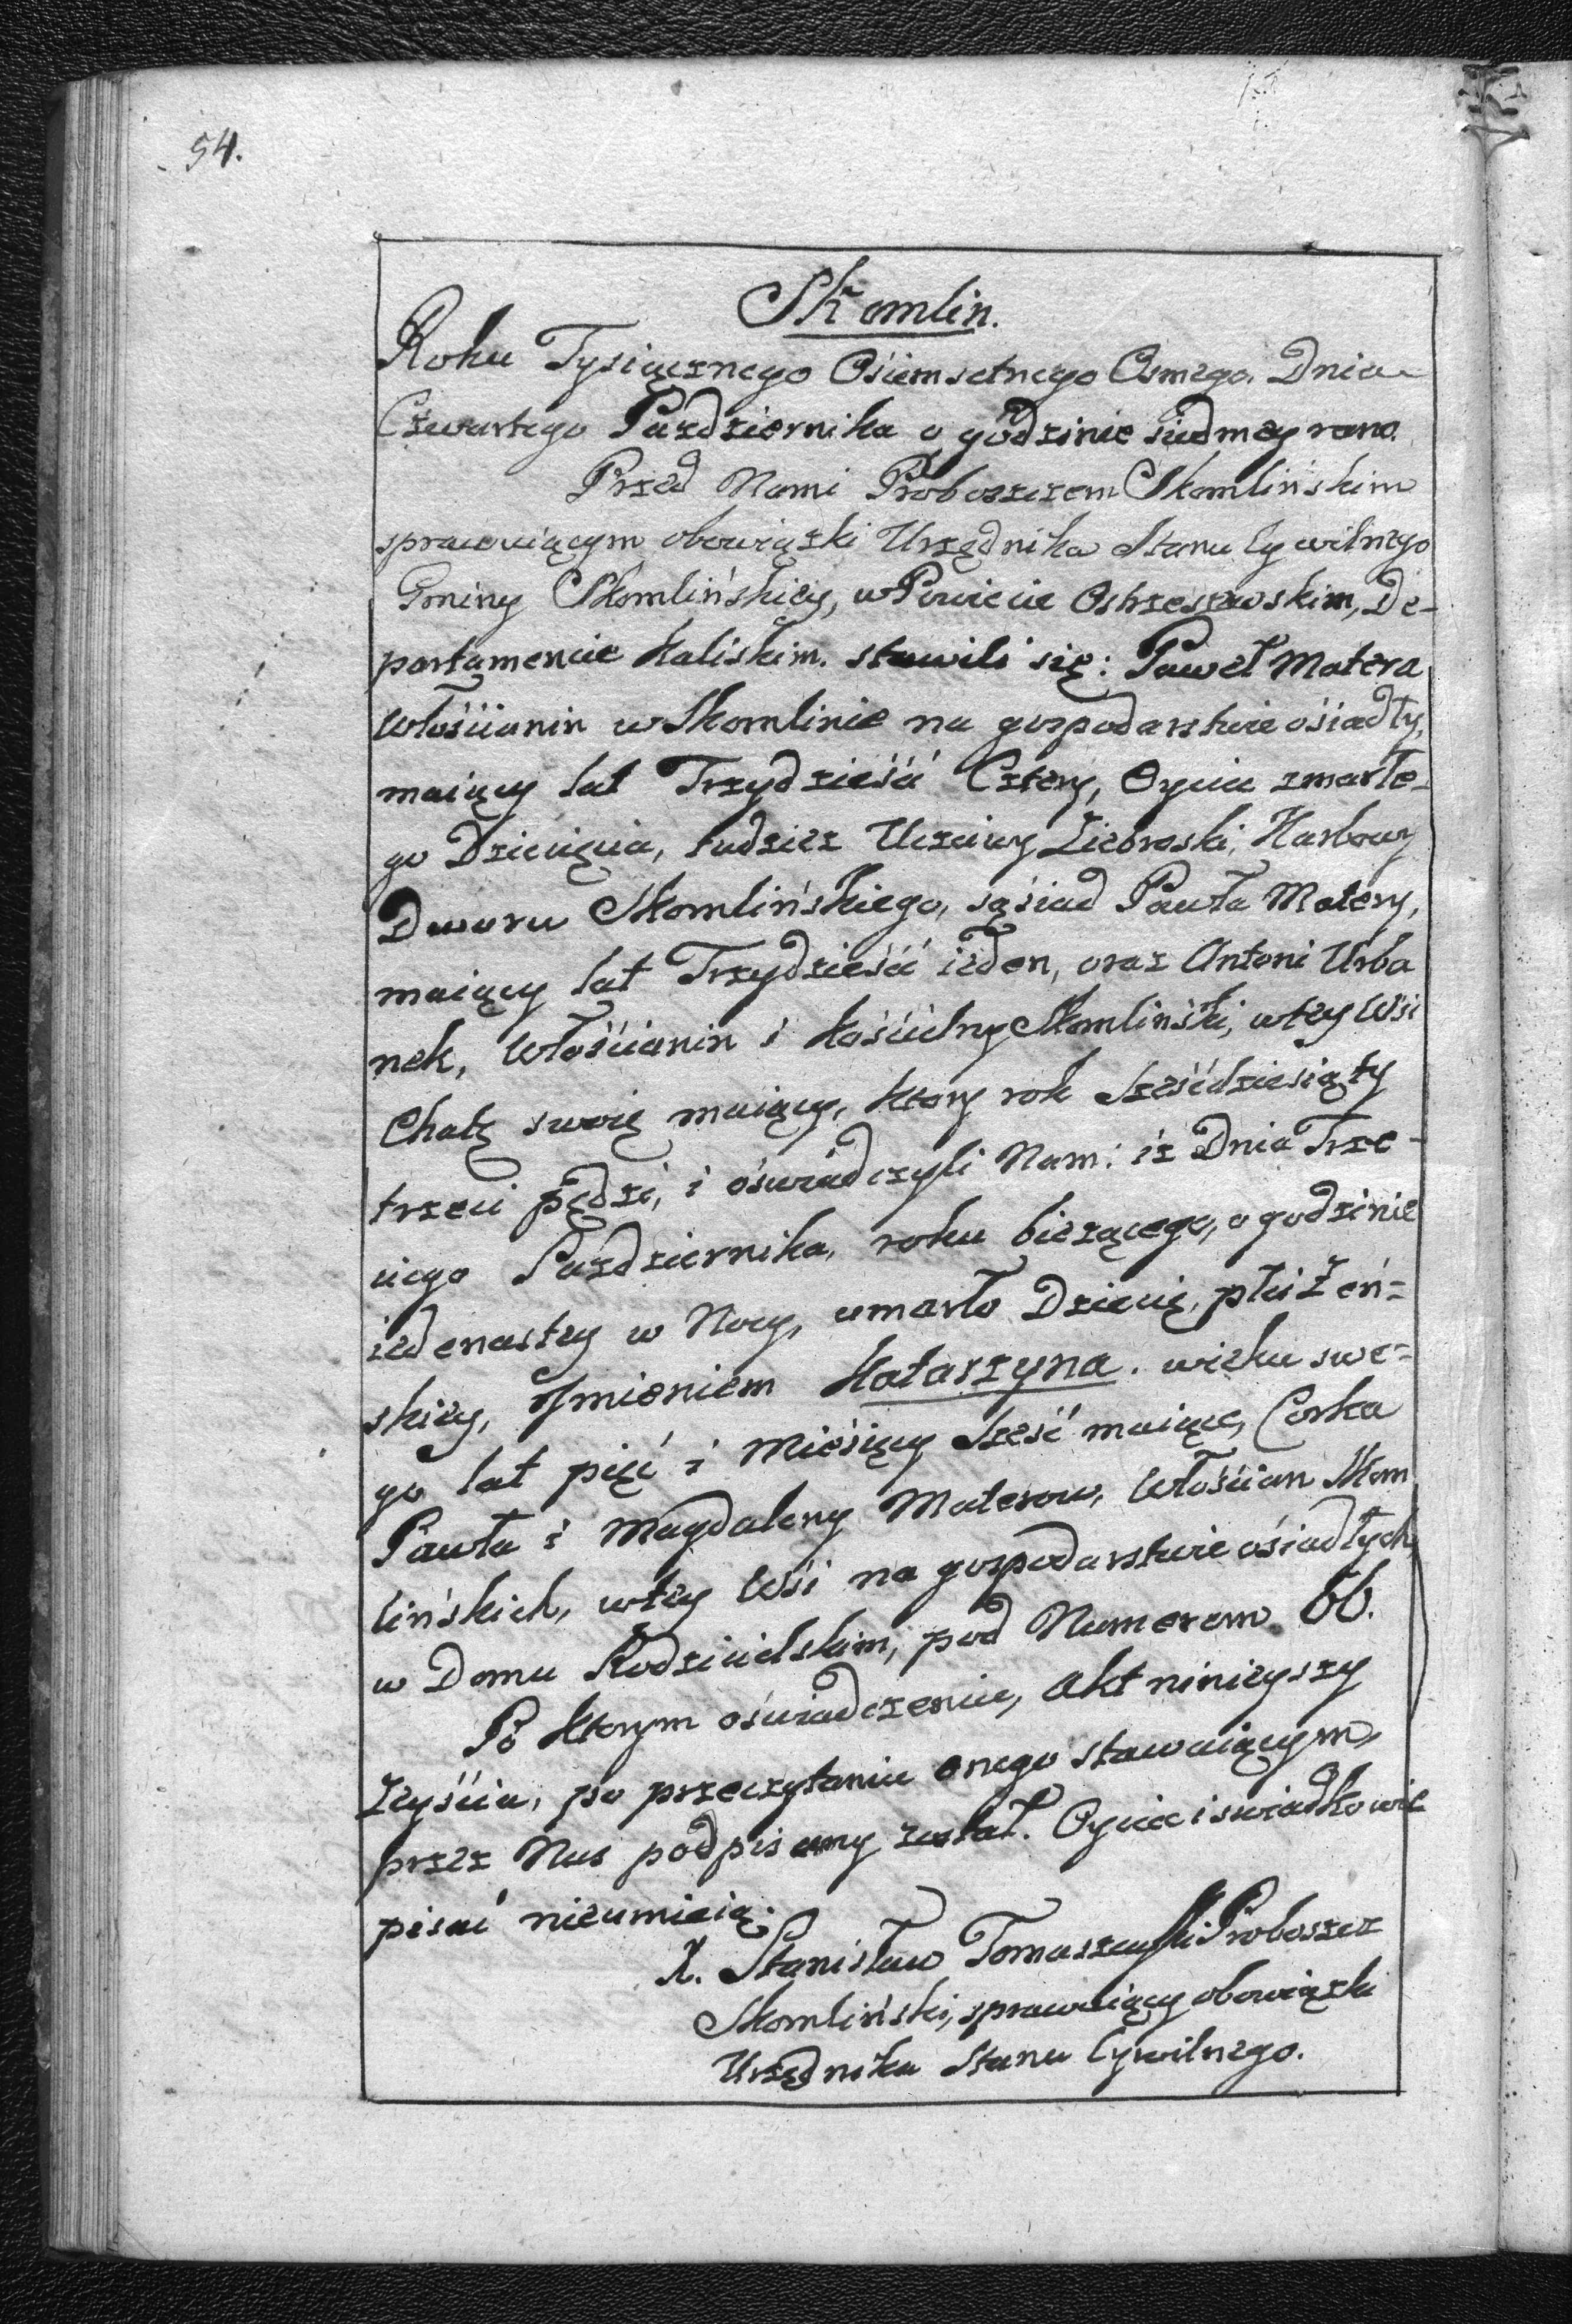 54.
Skomlin.
Roku Tysiącznego Ośiemsetnego Osmego. Dnia
Czwartego Pazdziernika o godzinie siudmey rano.
Przed Nami Proboszczem Skomlińskim
sprawuiącym obowiązki Urzędnika Stanu Cywilnego
Gminy Skomlińskiey, w Powiecie Ostrzeszowskim, De-
partamencie Kaliskim. stawili się: Paweł Matera
Włościanin w Skomlinie na gospodarstwie ośiadły,
maiący lat Trzydzieści Cztery, Oyciec zmarłe-
go Dziecięcia, tudzież Uczciwy Ziebroski, Karbowy
Dworu Skomlińskiego, sąśiad Pawła Matery,
maiący lat Trzydzieści ieden, oraz Antoni Urba
nek, Włościanin i Kościelny Skomliński, w tey Wśi
Chatę swoię maiący, ktory rok Sześćdziesiąty
trzeci pędzi, i oświadczyli Nam: iż Dnia Trze-
ciego Pazdziernika, roku bieżącego, o godzinie
iedenastey w Nocy, umarło Dziecię, płci Żeń=
skiey, Imieniem Katarzyna. wieku swe=
go lat pięć i Mieśięcy sześć maiące, Corka
Pawła i Magdaleny Materow, Włościan Skom
lińskich, w tey Wśi na gospodarstwie ośiadłych,
w Domu Rodzicielskim, pod Numerem 66.
Po ktorym oświadczeniu, Akt ninieyszy
Zeyścia, po przeczytaniu onego stawaiącym,
przez Nas podpisany został. Oyciec i swiadkowie
pisać nieumieią.
X. Stanisław Tomaszewski Proboszcz
Skomliński, sprawuiący obowiązki
Urzędnika Stanu Cywilnego.